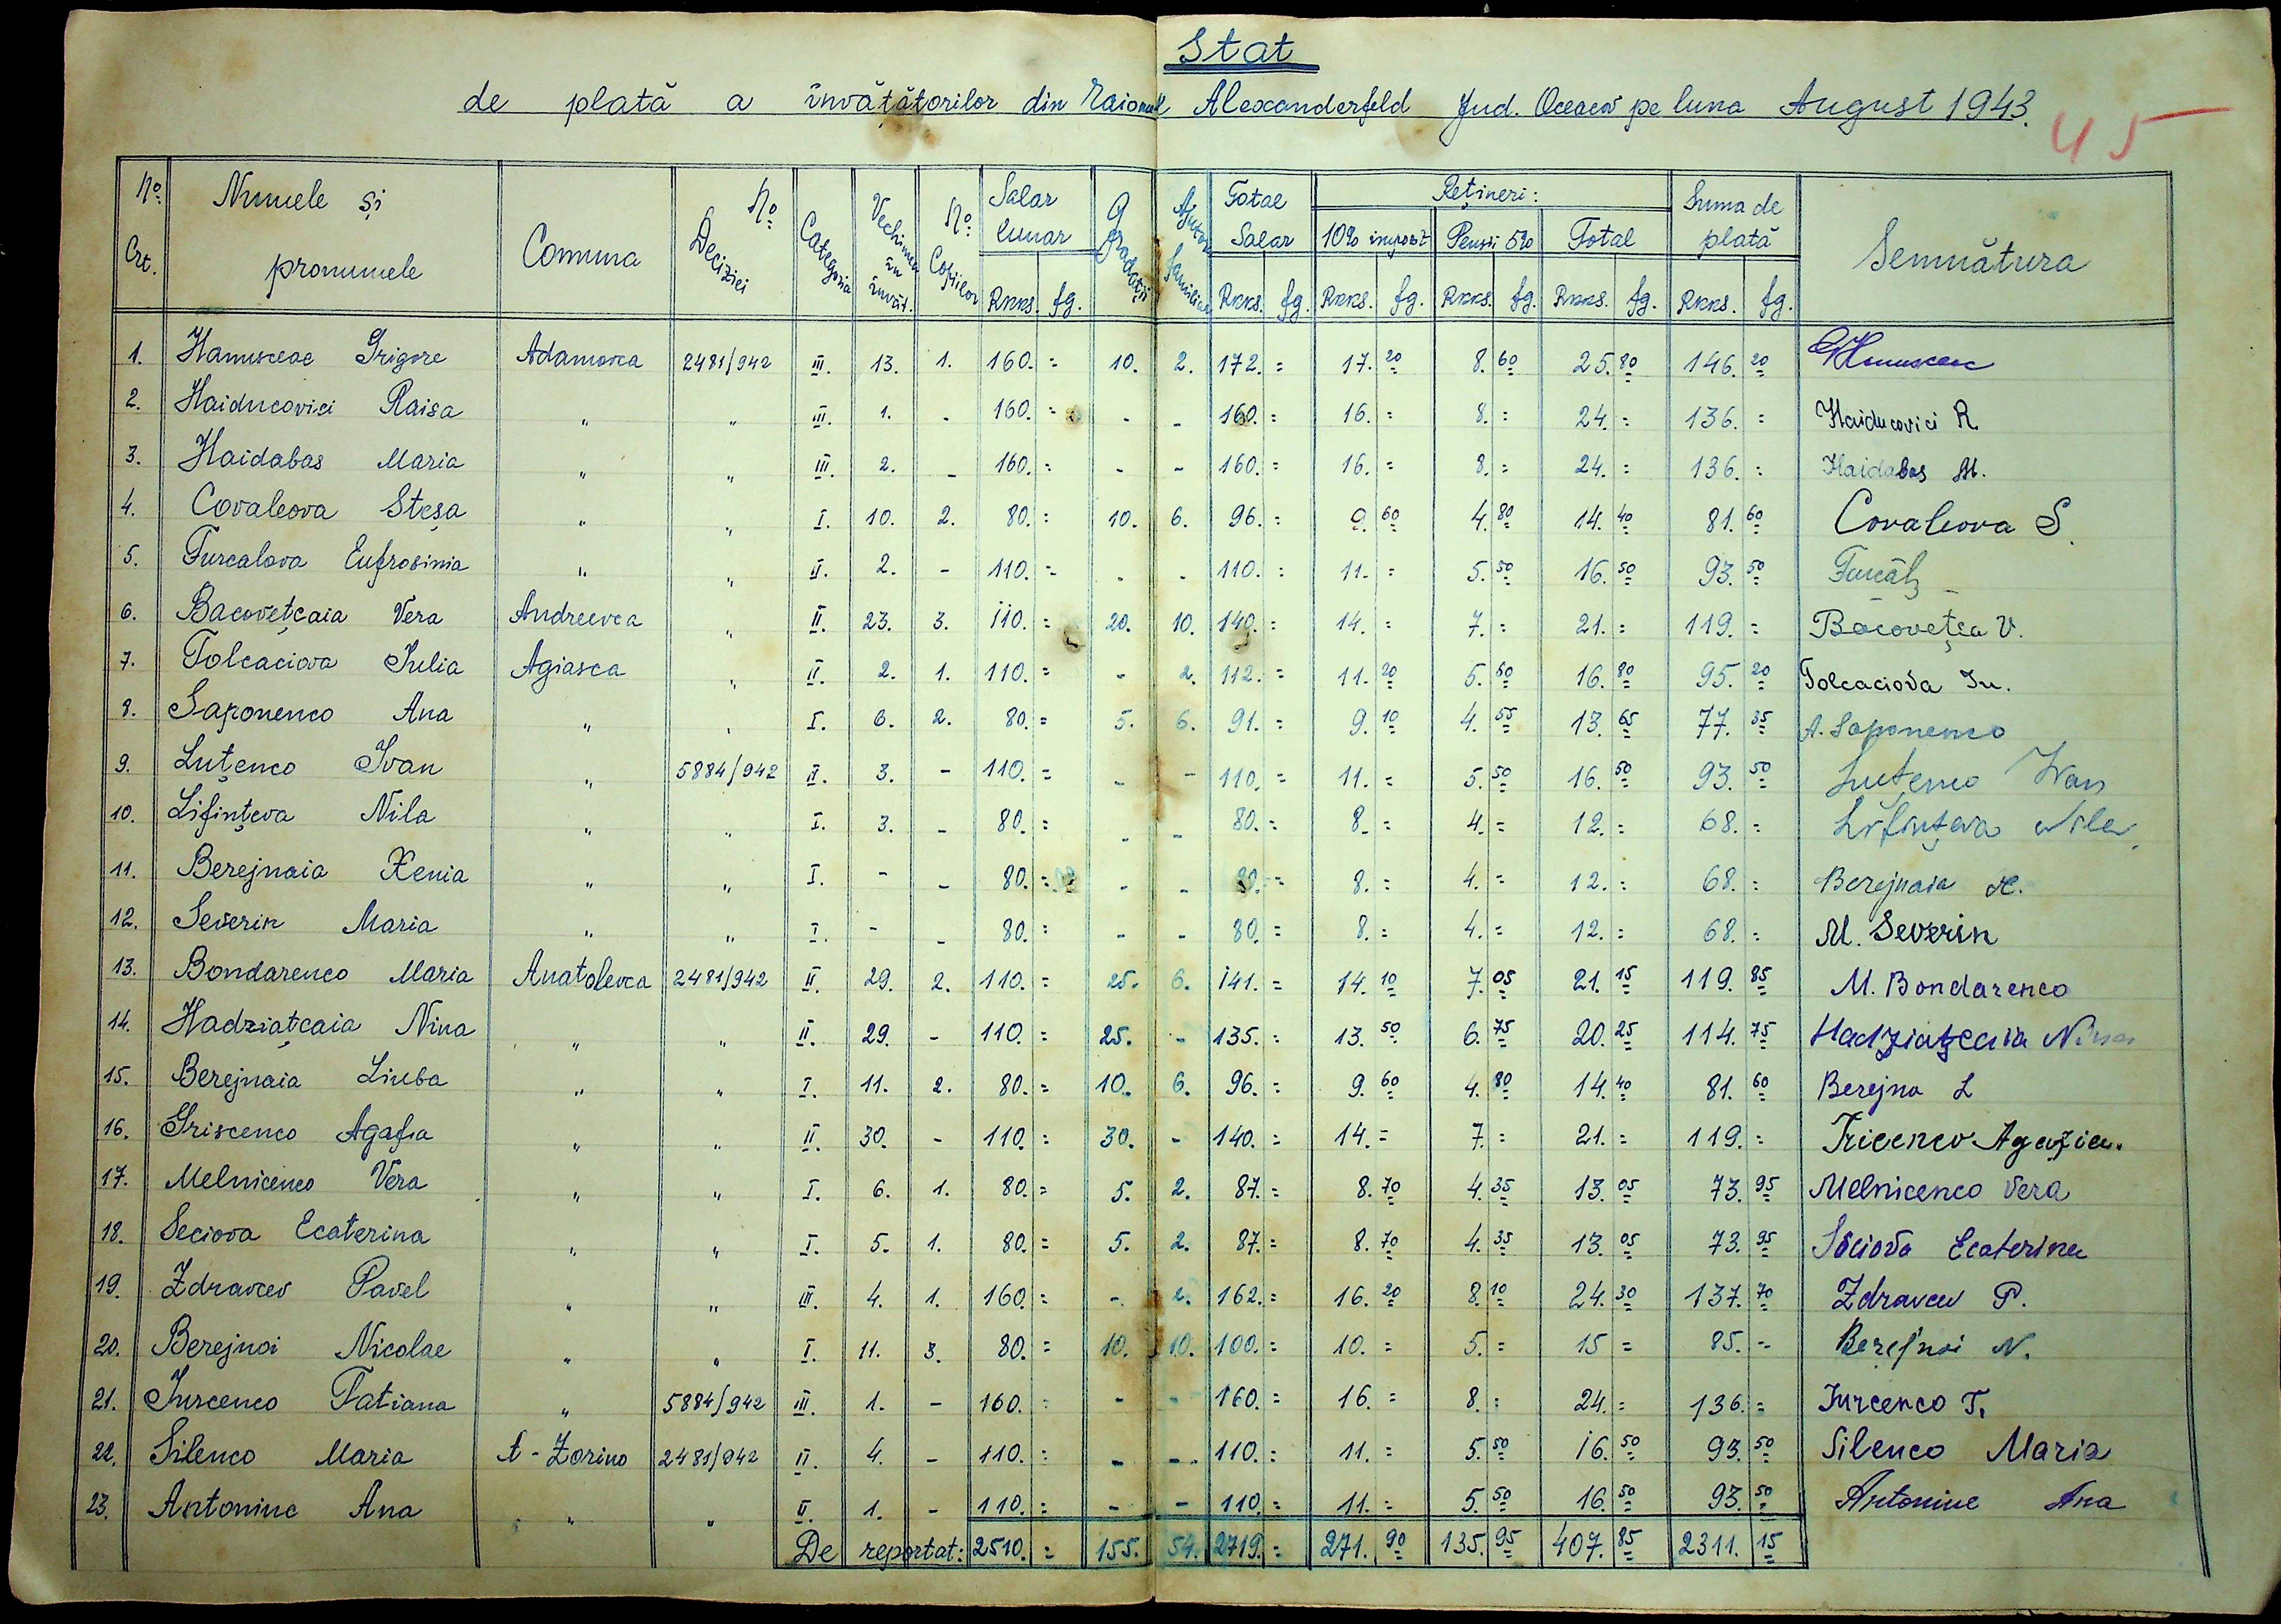 Stat
de plată a învățătorilor din Raionul Alexanderfeld Jud. Oceacov pe luna August 1943.
45
No. Crt. Numele și pronumele Comuna No Deciziei Categoria Vechimea în învăț. No. Copiilor Salar lunar Gradații Ajutor familiar Total Salar Rețineri: Suma de plată Semnătura
10% impozit Pensii 5% Total
Rkks. fg. Rkks. fg. Rkks. fg. Rkks. fg. Rkks. fg. Rkks. fg.
1. Hanusceac Grigore Adamovca 2481/942 III. 13. 1. 160. = 10. 2. 172. = 17. 20 8. 60 25. 80 146. 20
2. Haiducovici Raisa " " III. 1. - 160. = - - 160. = 16. = 8. = 24. = 136. = Haiducovici R.
3. Haidabas Maria " " III. 2. - 160. = - - 160. = 16. = 8. = 24. = 136. = Haidabas M.
4. Covaleova Steșa " " I. 10. 2. 80. = 10. 6. 96. = 9. 60 4. 80 14. 40 81. 60 Covaleova S.
5. Furcalova Eufrosinia " " II. 2. - 110. = - - 110. = 11. = 5. 50 16. 50 93. 50
6. Bacovețcaia Vera Andreevca " II. 23. 3. 110. = 20. 10. 140. = 14. = 7. = 21. = 119. = Bacovețca V.
7. Tolcaciova Iulia Agiasca " II. 2. 1. 110. = - 2. 112. = 11. 20 5. 60 16. 80 95. 20 Tolcaciova Iu.
8. Saponenco Ana " " I. 6. 2. 80. = 5. 6. 91. = 9. 10 4. 55 13. 65 77. 35 A. Saponenco
9. Luțenco Ivan " 5884/942 II. 3. - 110. = - - 110. = 11. = 5. 50 16. 50 93. 50 Luțenco Ivan
10. Lifințeva Nila " " I. 3. - 80. = - - 80. = 8. = 4. = 12. = 68. = Lifințeva Nila
11. Berejnaia Xenia " " I. - - 80. = - - 80. = 8. = 4. = 12. = 68. = Berejnaia X.
12. Severin Maria " " I. - - 80. = - - 80. = 8. = 4. = 12. = 68. = M. Severin
13. Bondarenco Maria Anatolevca 2481/942 II. 29. 2. 110. = 25. 6. 141. = 14. 10 7. 05 21. 15 119. 85 M. Bondarenco
14. Hadziațcaia Nina " " II. 29. - 110. = 25. - 135. = 13. 50 6. 75 20. 25 114. 75 Hadziațcaia Nina
15. Berejnaia Liuba " " I. 11. 2. 80. = 10. 6. 96. = 9. 60 4. 80 14. 40 81. 60 Berejna L
16. Griscenco Agafia " " II. 30. - 110. = 30. - 140. = 14. = 7. = 21. = 119. =
17. Melnicenco Vera " " I. 6. 1. 80. = 5. 2. 87. = 8. 70 4. 35 13. 05 73. 95 Melnicenco Vera
18. Seciova Ecaterina " " I. 5. 1. 80. = 5. 2. 87. = 8. 70 4. 35 13. 05 73. 95 Seciova Ecaterina
19. Zdravcev Pavel " " III. 4. 1. 160. = - 2. 162. = 16. 20 8. 10 24. 30 137. 70 Zdravcev P.
20. Berejnoi Nicolae " " I. 11. 3. 80. = 10. 10. 100. = 10. = 5. = 15 = 85. = Berejnoi N.
21. Iurcenco Tatiana " 5884/942 III. 1. - 160. = - - 160. = 16. = 8. = 24. = 136. = Iurcenco T.
22. Silenco Maria A-Zorino 2481/942 II. 4. - 110. = - - 110. = 11. = 5. 50 16. 50 93. 50 Silenco Maria
23. Antoniuc Ana " " II. 1. - 110. = - - 110. = 11. = 5. 50 16. 50 93. 50 Antoniuc Ana
De reportat: 2510. = 155. 54. 2719. = 271. 90 135. 95 407. 85 2311. 15